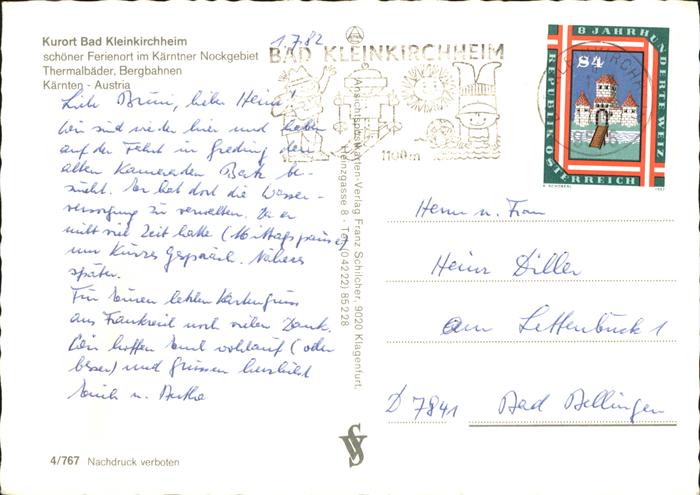 Kurort Bad Kleinkirchheim
schöner Ferienort im Kärntner Nockgebiet
Thermalbäder, Bergbahnen
Kärnten - Austria
1.7.82
BAD KLEINKIRCHHEIM
1100 m
8 JAHRHUNDERTE WEIZ
84
REPUBLIK ÖSTERREICH
Liebe Bruni, lieber Heinz!
Wir sind wieder hier und haben
auf der Fahrt in Greding den
alten Kameraden Bak be-
sucht. Er hat dort die Wasser-
versorgung zu verwalten. Da er
nicht viel Zeit hatte (Mittagspause)
nur kurzes Gespräch. Näheres
später.
Für Deinen letzten Kartengruss
aus Frankreich noch vielen Dank.
Wir hoffen Euch wohlauf (oder
besser) und grüssen herzlichst
Erich u.
Ansichtspostkarten-Verlag Franz Schilcher, 9020 Klagenfurt,
Heinzgasse 8 - Tel. (0 42 22) 85 2 28
Herrn u. Frau
Heinz Diller
am Lettenbuck 1
D 7841 Bad Bellingen
4/767 Nachdruck verboten